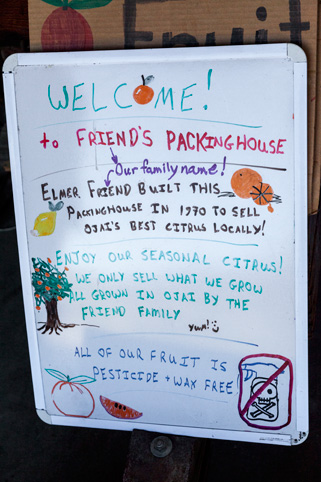 Fruit
WELCOME!
to FRIEND'S PACKINGHOUSE
Our family name!
ELMER FRIEND BUILT THIS
PACKINGHOUSE IN 1970 TO SELL
OJAI'S BEST CITRUS LOCALLY!
ENJOY OUR SEASONAL CITRUS!
WE ONLY SELL WHAT WE GROW
ALL GROWN IN OJAI BY THE
FRIEND FAMILY
YUM!
ALL OF OUR FRUIT IS
PESTICIDE + WAX FREE